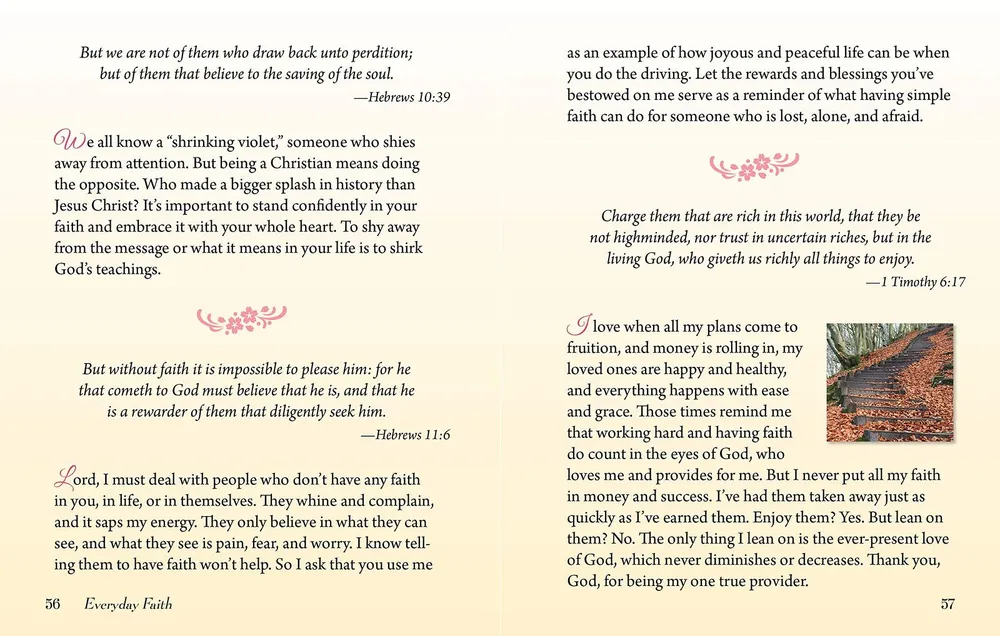 But we are not of them who draw back unto perdition;
but of them that believe to the saving of the soul.
—Hebrews 10:39
We all know a “shrinking violet,” someone who shies
away from attention. But being a Christian means doing
the opposite. Who made a bigger splash in history than
Jesus Christ? It’s important to stand confidently in your
faith and embrace it with your whole heart. To shy away
from the message or what it means in your life is to shirk
God’s teachings.
But without faith it is impossible to please him: for he
that cometh to God must believe that he is, and that he
is a rewarder of them that diligently seek him.
—Hebrews 11:6
Lord, I must deal with people who don’t have any faith
in you, in life, or in themselves. They whine and complain,
and it saps my energy. They only believe in what they can
see, and what they see is pain, fear, and worry. I know tell-
ing them to have faith won’t help. So I ask that you use me
56 Everyday Faith
as an example of how joyous and peaceful life can be when
you do the driving. Let the rewards and blessings you’ve
bestowed on me serve as a reminder of what having simple
faith can do for someone who is lost, alone, and afraid.
Charge them that are rich in this world, that they be
not highminded, nor trust in uncertain riches, but in the
living God, who giveth us richly all things to enjoy.
—1 Timothy 6:17
I love when all my plans come to
fruition, and money is rolling in, my
loved ones are happy and healthy,
and everything happens with ease
and grace. Those times remind me
that working hard and having faith
do count in the eyes of God, who
loves me and provides for me. But I never put all my faith
in money and success. I’ve had them taken away just as
quickly as I’ve earned them. Enjoy them? Yes. But lean on
them? No. The only thing I lean on is the ever-present love
of God, which never diminishes or decreases. Thank you,
God, for being my one true provider.
57